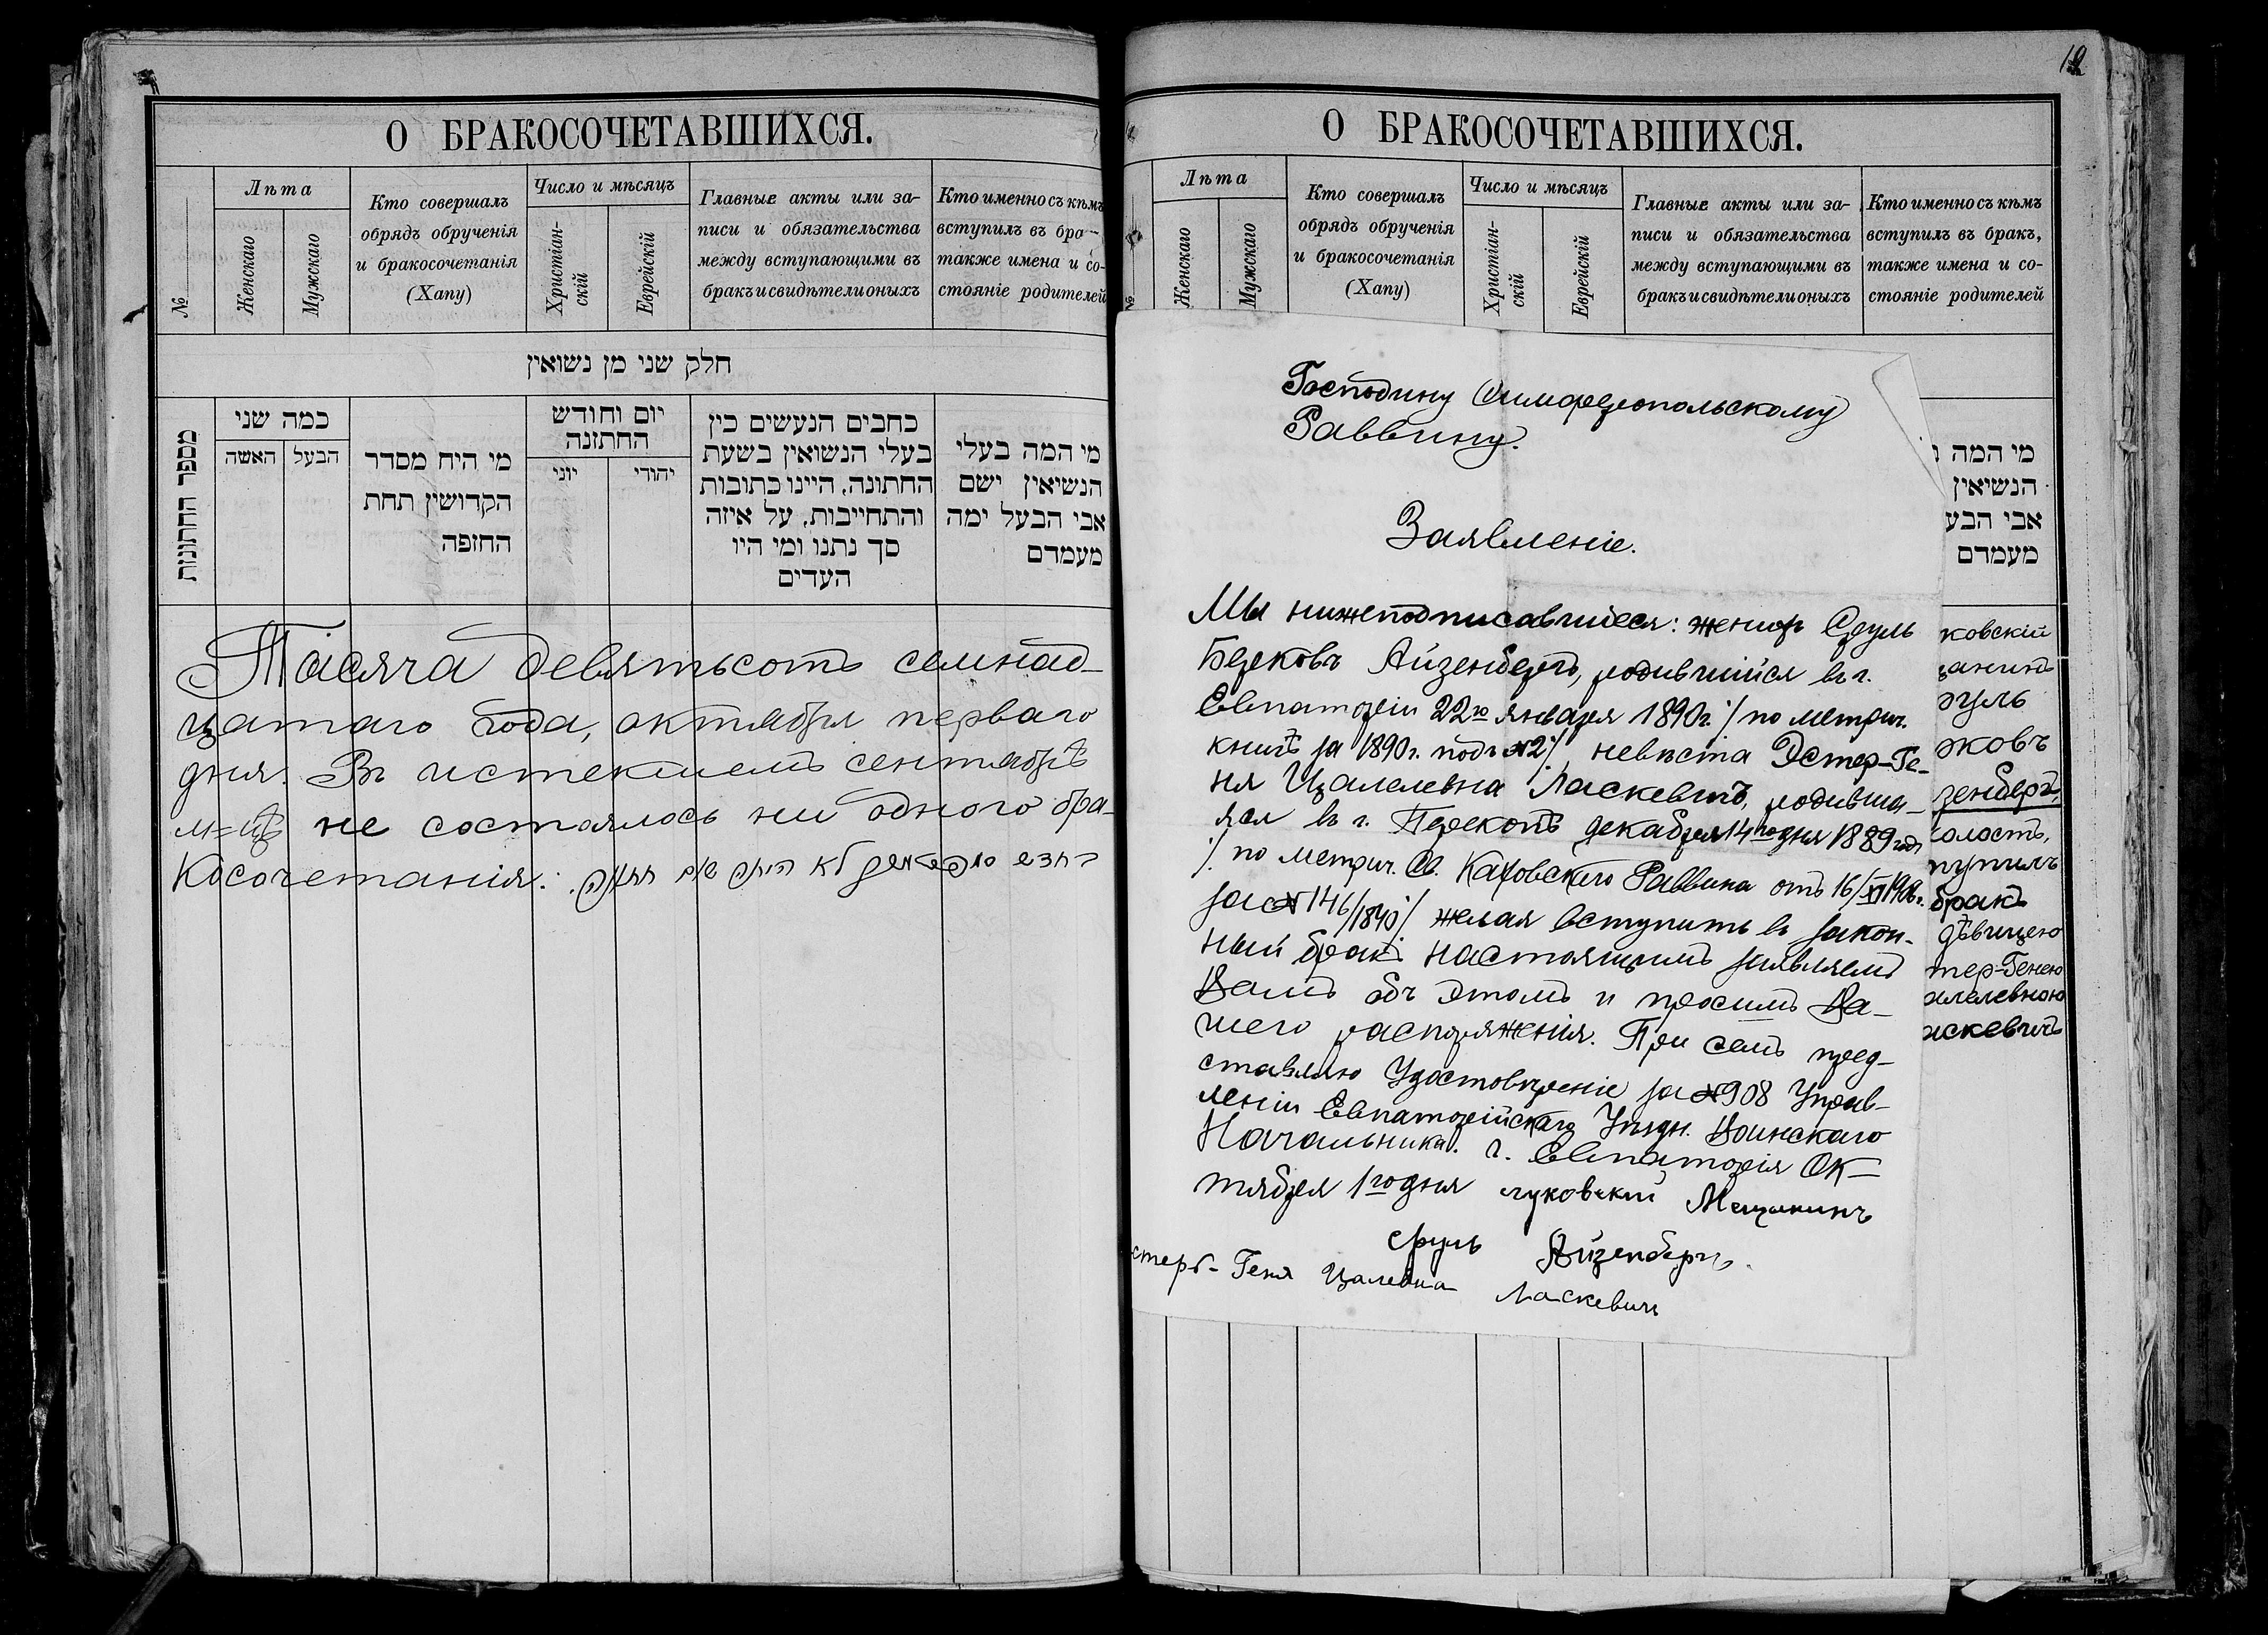 О БРАКОСОЧЕТАВШИХСЯ.
№
Лѣта
Женскаго
Мужскаго
Кто совершалъ
обрядъ обрученія
и бракосочетанія
(Хапу)
Число и мѣсяцъ
Христіан-
скій
Еврейскій
Главные акты или за-
писи и обязательства
между вступающими въ
бракъ и свидѣтели оныхъ
Кто именно съ кѣмъ
вступилъ въ бра
также имена и со-
стояніе родителей
חלק שני מן נשואין
מספר החתונות
כמה שני
האשה
הבעל
מי היח מסדר
הקדושין תחת
החופה
יום וחודש
החתונה
יוני
יהודי
כתבים הנעשים בין
בעלי הנשואין בשעת
החתונה, היינו כתובות
והתחייבות, על איזה
סך נתנו ומי היו
העדים
מי המה בעלי
הנשיאין ישם
אבי הבעל ימה
מעמדם
Тысяча девятьсотъ семнад-
цатаго года, октября перваго
дня. Въ истекшемъ сентябрѣ
м-цѣ не состоялось ни одного бра-
косочетанія.
12
О БРАКОСОЧЕТАВШИХСЯ.
№
Лѣта
Женскаго
Мужскаго
Кто совершалъ
обрядъ обрученія
и бракосочетанія
(Хапу)
Число и мѣсяцъ
Христіан-
скій
Еврейскій
Главные акты или за-
писи и обязательства
между вступающими въ
бракъ и свидѣтели оныхъ
Кто именно съ кѣмъ
вступилъ въ бракъ,
также имена и со-
стояніе родителей
מי המה
הנשיאין
אבי הבע
מעמדם
Господину Симферопольскому
Раввину.
Заявленіе.
Мы нижеподписавшіеся: женихъ Сруль
Берковъ Айзенбергъ, родившійся въ г.
Евпаторіи 22го января 1890г. /по метрич.
книгѣ за 1890г. подъ №2/, невѣста Эстер-Ге-
ня Цалелевна Ласкевичъ, родивша-
яся въ г. Перекопѣ декабря 14го дня 1889 года
/по метрич. Св. Каховского Раввина отъ 16/XI 1906г.
за №146/1840/ желая вступить въ закон-
ный бракъ настоящимъ заявляемъ
Вамъ объ этомъ и просимъ Ва-
шего распоряженія. При семъ пред-
ставляю Удостовѣреніе за №908 Управ-
леніи Евпаторійскаго Уѣздн. Воинскаго
Начальника. г. Евпаторія Ок-
тября 1го дня луковскій Мещанинъ
сруль Айзенбергъ.
стеръ-Геня Цалевна Ласкевичъ
ковскій
щанинъ
руль
рковъ
зенбергъ,
холостъ,
тупилъ
бракъ
дѣвицею
тер-Генею
алелевною
аскевичъ